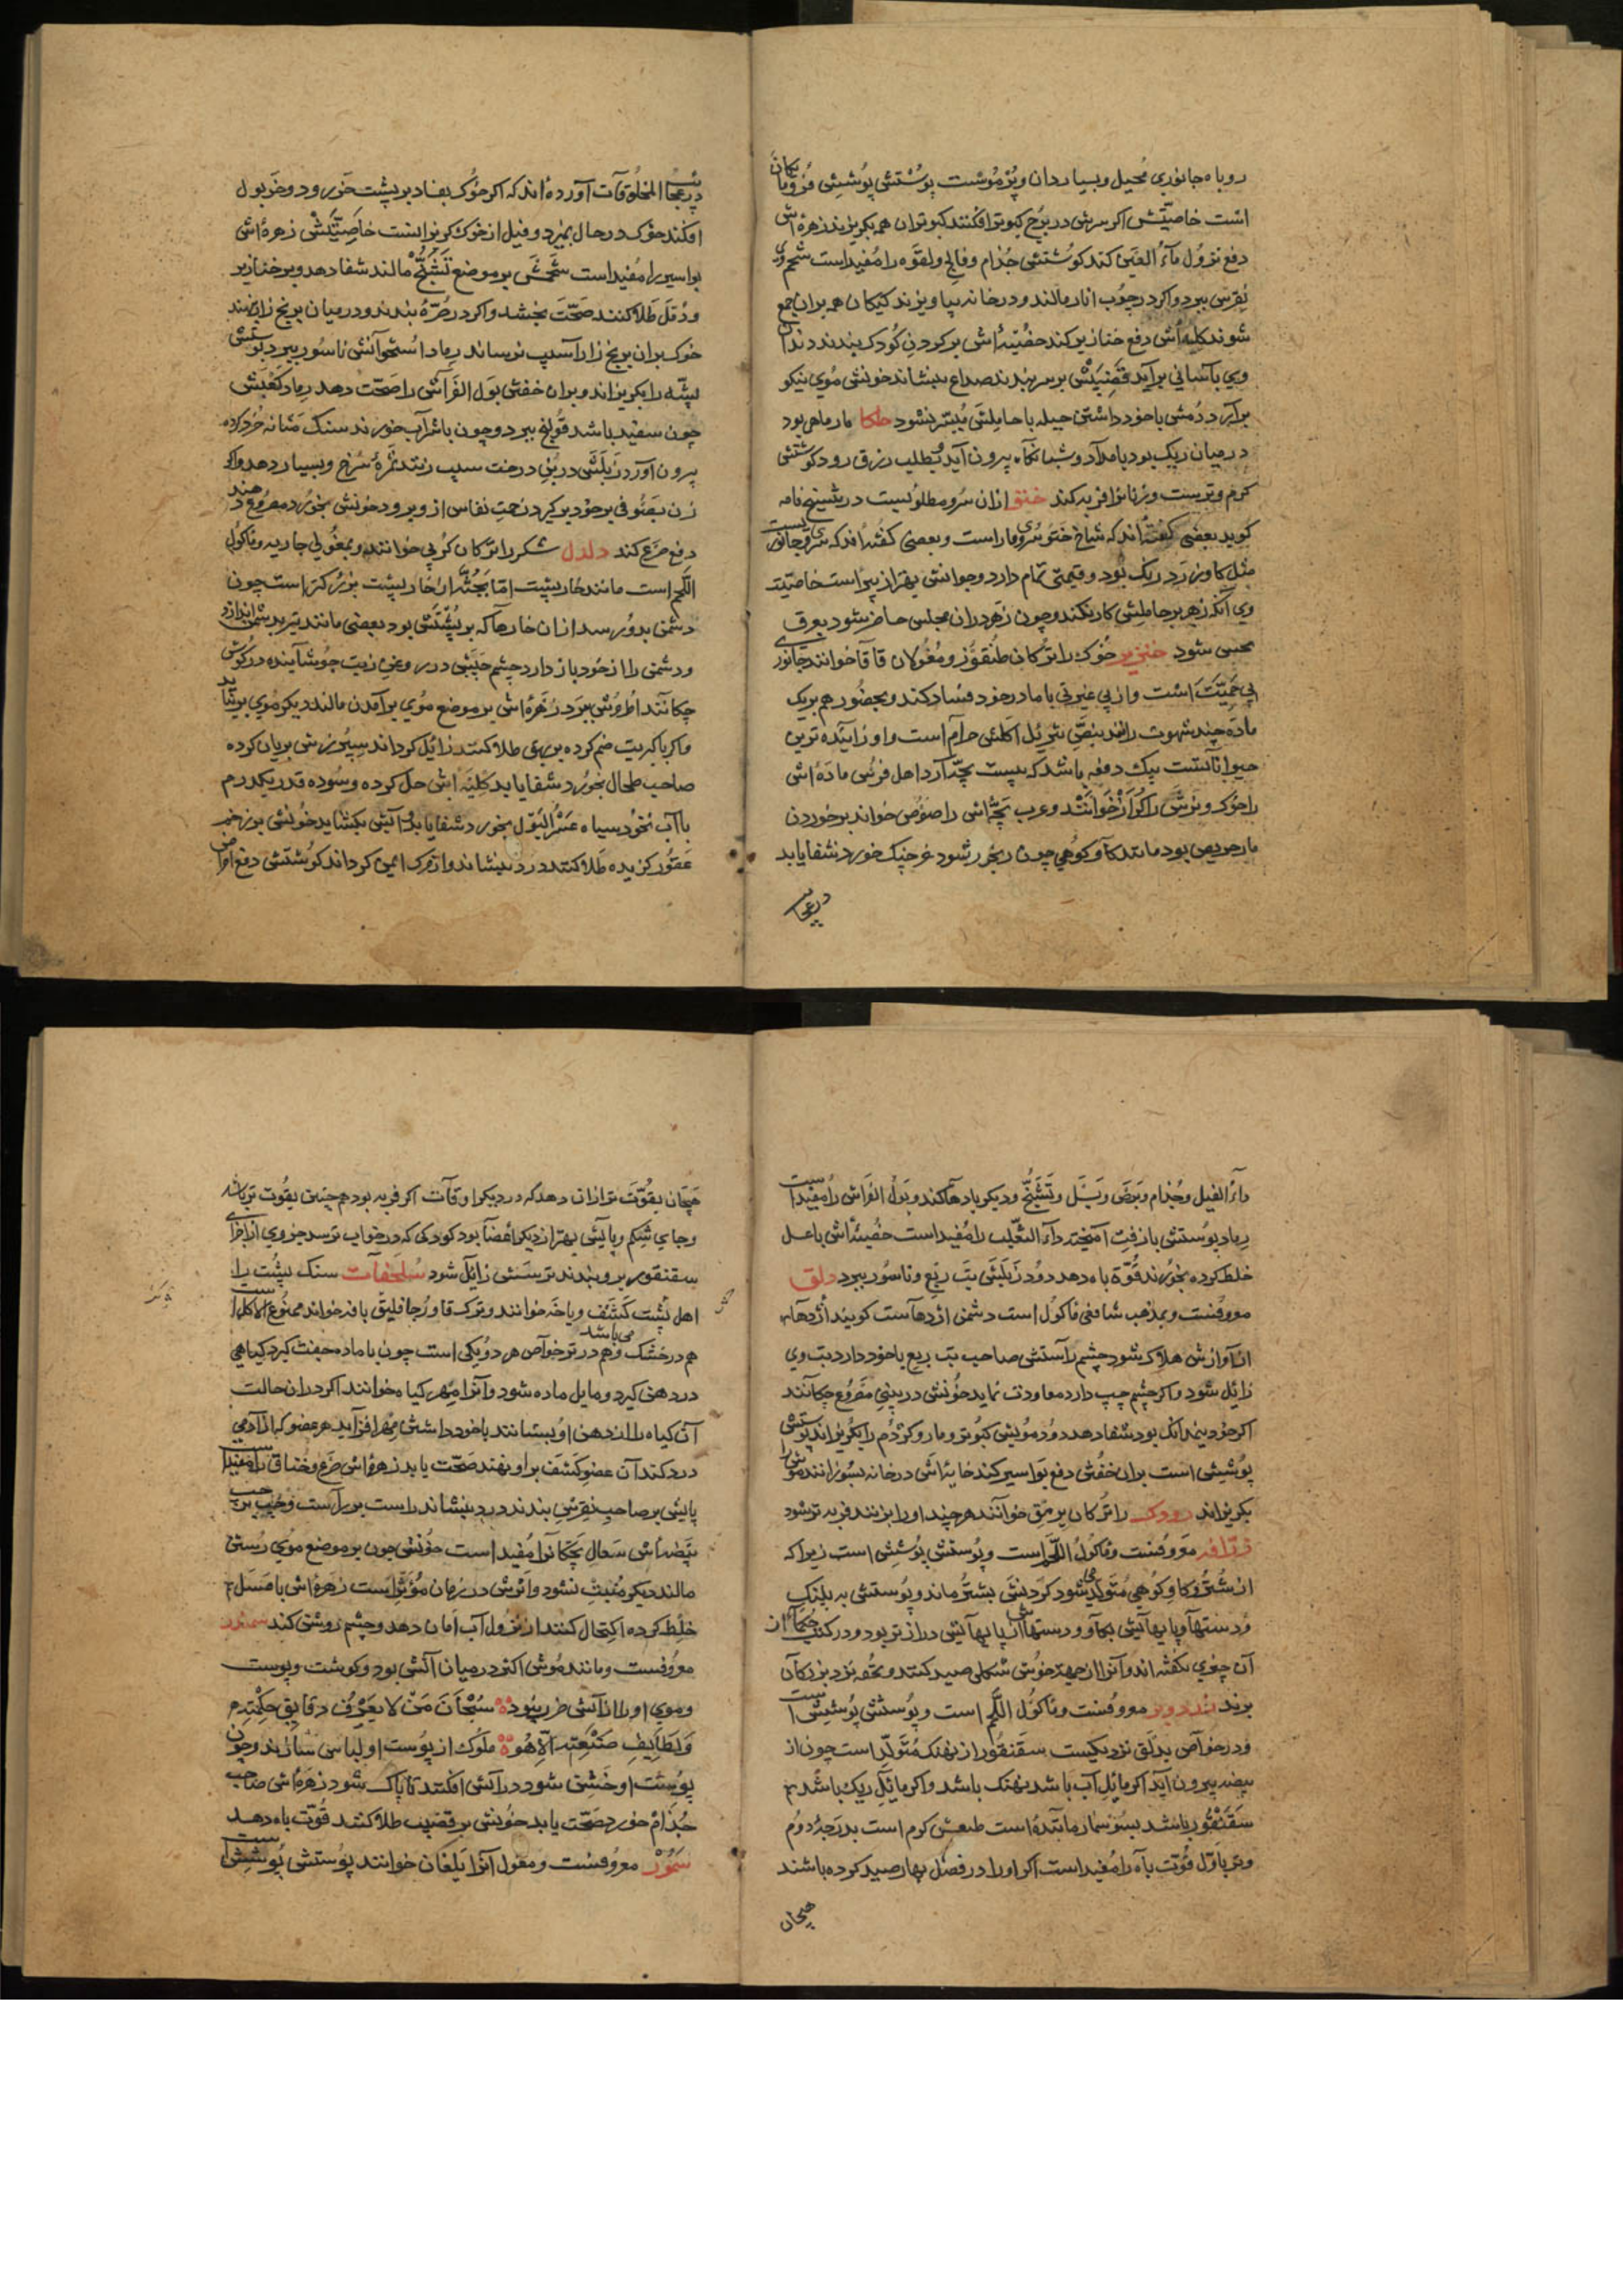 روباه جانوری محیل و بسیار دان و پر موست پوستش پوشش فرومایکان
است خاصیتش اکر سرش در برج کبوتر افکنند کبوتران همه بکریزند زهره اش
دفع نزول ماء العین کند کوشتش جذام و فالج و لقوه را مفیداست شحم وی
نقرس ببرد و اکر در چوب انار مالند و در خانه بیاویزند کیکان همه بران جمع
شوند کلیه اش دفع خنازیر کند خصیه اش بر کردن کودک بندند دندان
وی بآسانی برآید قضیبش بر سر بندند صداع بنشاند خونش موی نیکو
برآرد دمش با خود داشتن حیله با حاملش میسر نشود حلکا مار ماهی بود
در میان ریک بود بامداد و شبانکاه بیرون آید و بطلب رزق رود کوشتش
کرم و ترست و زنانرا فربه کند ختو ازان سرو مطلوبست در نامه
کوید بعضی کفته اند که شاخ ختو سروی مار است و بعضی کفته اند که سروی جانوریست
مثل کاو زرد ریک بود و قیمتی تمام دارد و جوانش بهتر از پیر است خاصیت
وی آنکه زهر بر حاملش کار نکند و چون زهر دران مجلس حاضر شود بعرق
محسی شود خنزیر خوک را ترکان طنقوز و مغولان قاقا خوانند جانوری
بی حمیت است و از بی غیرتی با مادر خود فساد کند و بحضور هم بریک
ماده چند شهوت رانند بنص تنزیل اکلش حرام است و او زاینده ترین
حیواناتست بیک دفعه باشد که بیست بچه آرد اهل فرس ماده اش
را خوک و نرش را کراز خوانند و عرب بچه اش را خنوص خواند بر خوردن
مار حریص بود مانند کاو کوهی چون رنجور شود خرچنک خورد شفا یابد
در عجایب
در عجایب المخلوقات آورده اند که اکر خوک بفاد بر پشت خر رود و خر بول
افکند خوک در حال بمیرد و فیل از خوک کریزانست خاصیتش زهره اش
بواسیر را مفیداست شحمش بر موضع تشنج مالند شفا دهد و بر خنازیر
و دمل طلا کنند صحت بخشد و اکر در خرقه بندند و در میان برنج زار نهند
خوک بران برنج زار آسیب نرساند رماد استخوانش ناسور ببرد پوستش
پشه را بکریزاند و بران خفتن بول الفراش را صحت دهد رماد کعبش
چون سفید باشد قولنج ببرد و چون با شراب خورند سنک مثانه خرد کرده
بیرون آورد زبلش در بن درخت سیب ریزند ثمره سرخ و بسیار دهد و اکر
زن بصوفی بر خود بر کیرد زحمت نفاس از و برود خونش بخورد مصروع دهند
دفع صرع کند دلدل شکر را ترکان کرپی خوانند و بمغولی جاریه و ماکول
اللحم است مانند خار پشت اما بجثه از خار پشت بزرکتر است چون
دشمن بدو رسد ازان خارها که بر پشتش بود بعضی مانند تیر بدشمن اندازد
و دشمن را از خود باز دارد چشم چپش در روغن زیت جوشانیده در کوش
چکانند اطروش ببرد زهره اش بر موضع موی برآمدن مالند دیکر موی برنیاید
و اکر با کبریت ضم کرده بر بهق طلا کنند زائل کرداند سپرزش بریان کرده
صاحب طحال بخورد شفا یابد کلیه اش حل کرده و سوده قدر یکدرم
با آب نخود سیاه عسر البول بخورد شفا یابد و آبش بکشاید خونش بر زخم
عقور کزیده طلا کنند درد بنشاند و از مرک ایمن کرداند کوشتش دفع امراض
داء الفیل و جذام و برص و سل و تشنج و دیکر بادها کند و بول الفراش را مفیداست
رماد پوستش با زفت آمیخته داء الثعلب را مفیداست خصیه اش با عسل
خلط کرده بخورند قوة باه دهد دود زبلش تب ربع و ناسور ببرد دلق
معروفست و بمذهب شافعی ماکول است دشمن اژدهاست کویند اژدها
از آوازش هلاک شود چشم راستش صاحب تب ربع با خود دارد تب وی
زایل شود و اکر چشم چپ دارد معاودت نماید خونش در بینی مصروع چکانند
اکر خود نیم دانک بود شفا دهد دود مویش کبوتر و مار و کژدم را بکریزاند پوستش
پوشش است بران خفتن دفع بواسیر کند خایه اش در خانه بسوزانند موش را
بکریزاند رودک را ترکان برمق خوانند هر چند او را بزنند فربه تر شود
زرافه معروفست و ماکول اللحم است و پوستش پوشش است زیرا که
از شتر و کاو کوهی متولد شود کردنش بشتر ماند و پوستش به پلنک
و دستها و پایهاش بکاو و دستهااش از پایهاش دراز تر بود و در کتب حکما از
آن چیزی نکفته اند و آنرا از جهت خوش شکلی صید کنند و تحفه نزد بزرکان
برند معروفست و ماکول اللحم است و پوستش پوشش است
و در خواص بدلق نزدیکست سقنقور از نهنک متولد است چون از
بیضه بیرون آید اکر مایل آب باشد نهنک باشد و اکر مایل ریک باشد
سقنقور باشد بسوسمار ماننده است طبعش کرم است بدرجه دوم
و تر باول قوت باه را مفیداست اکر او را در فصل بهار صید کرده باشند
هیجان
هیجان بقوت تر ازان دهد که در دیکر اوقات اکر فربه بود همچنین بقوت تر باشد
و جای شکم و پایش بهتر از دیکر اعضا بود کودکی که در خواب ترسد جزوی از اجزای
سقنقور برو بندند ترسش زائل شود سلحفات سنک پشت را
اهل کشف و باخه خوانند و ترک قاورجا قلیق بافه خواند ممنوع الاکل است
هم در خشک و هم در تر می باشد خواص هر دو یکی است چون با ماده جفت کیرد کیاهی
در دهن کیرد و مایل ماده شود و آنرا مهر کیاه خوانند اکر دران حالت
آن کیاه را از دهن او بستانند با خود داشتن مهر افزاید هر عضو که از آدمی
درد کند آن عضو کشف برو نهند صحت یابد زهره اش صرع و خناق را مفیداست
پایش بر صاحب نقرس بندند درد بنشاند راست بر راست و چپ بر چپ
بیضه اش سعال بچکانرا مفیداست خونش چون بر موضع موی رستن
مالند دیکر منبت نشود و اثرش در زمان مؤثر است زهره اش با عسل
خلط کرده اکتحال کنند از نزول آب امان دهد و چشم روشن کند سمندر
معروفست و مانند موش اکثر در میان آتش بود و کوشت و پوست
و موی او را از آتش ضرر نبود سبحان من لا یعرف دقایق حکمته
و لطایف صنعته الا هو ملوک از پوست او لباس سازند و چون
پوست او خشن شود در آتش افکنند تا پاک شود زهره اش صاحب
جذام خورد صحت یابد خونش بر قضیب طلا کنند قوت باه دهد
سمور معروفست و مغول آنرا بلغان خوانند پوستش پوشش است